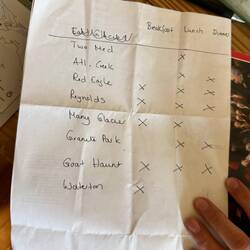 Breakfast Lunch Dinner
Two Med X
Atl. Creek X
Red Eagle X X
Reynolds X X X
Many Glacier X X
Granite Park X X
Goat Haunt X X X
Waterton X